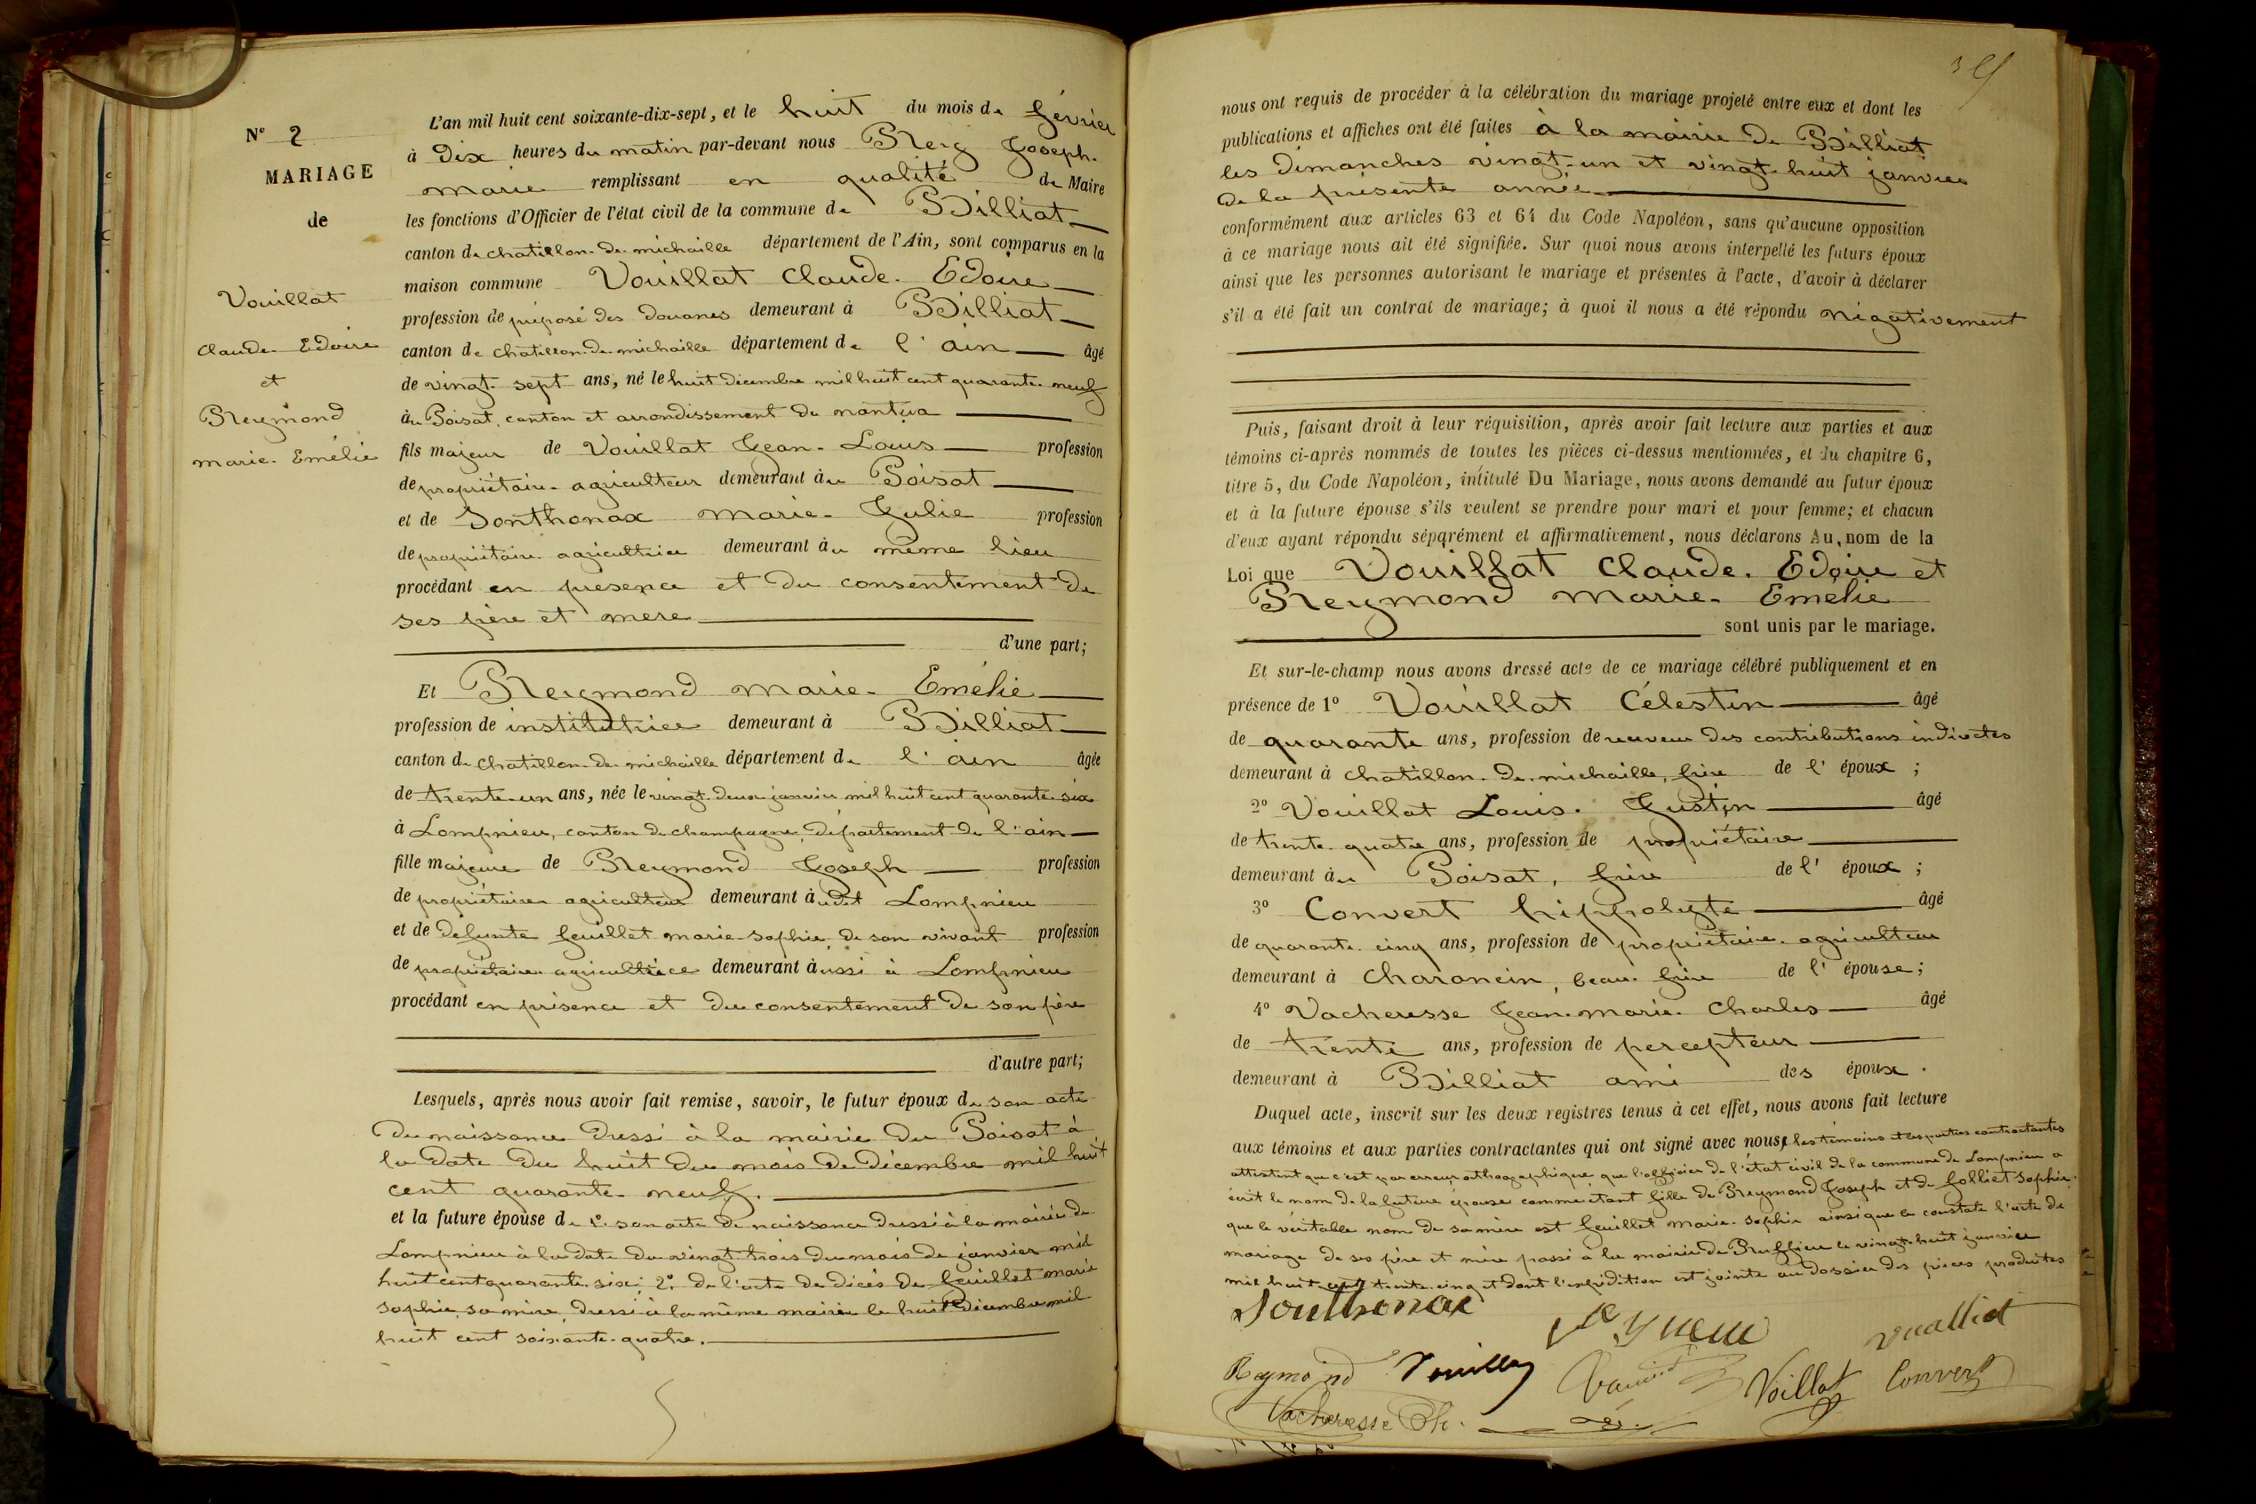 N° 2
MARIAGE
de
Vouillat
Claude. Edoire
et
Reymond
marie. Emélie
L'an mil huit cent soixante-dix-sept, et le huit du mois de février
à dix heures du matin par-devant nous Rey Joseph.
marie remplissant en qualité de Maire
les fonctions d'Officier de l'état civil de la commune de Billiat
canton de chatillon. de. michaille département de l'Ain, sont comparus en la
maison commune Vouillat Claude. Edoire
profession de préposé des douanes demeurant à Billiat
canton de chatillon. de. michaille département de l'ain âgé
de vingt. sept ans, né le huit décembre mil huit cent quarante. neuf
au Poisat, canton et arrondissement de nantua
fils majeur de Vouillat Jean. Louis profession
de propriétaire. agriculteur demeurant au Poisat
et de Sonthonax marie. Julie profession
de propriétaire. agricultrice demeurant au même lieu
procédant en présence et du consentement de
ses père et mère
d'une part;
Et Reymond marie. Emélie
profession de institutrice demeurant à Billiat
canton de chatillon. de. michaille département de l'ain âgée
de trente-un ans, née le vingt. deux janvier mil huit cent quarante. six
à Lompnieu, canton de champagne, département de l'ain
fille majeure de Reymond Joseph profession
de propriétaire agriculteur demeurant audit Lompnieu
et de défunte feuillet marie-sophie, de son vivant profession
de propriétaire agricultrice demeurant aussi à Lompnieu
procédant en présence et du consentement de son père
d'autre part;
Lesquels, après nous avoir fait remise, savoir, le futur époux de son acte
de naissance dressé à la mairie du Poisat à
la date du huit du mois de décembre mil huit
cent quarante. neuf.
et la future épouse de 1° son acte de naissance dressé à la mairie de
Lompnieu à la date du vingt. trois du mois de janvier mil
huit cent quarante. six; 2° de l'acte de décès de feuillet marie
sophie, sa mère, dressé à la même mairie le huit décembre mil
huit cent soixante. quatre.
nous ont requis de procéder à la célébration du mariage projeté entre eux et dont les
publications et affiches ont été faites à la mairie de Billiat
les dimanches vingt-un et vingt. huit janvier
de la présente année
conformément aux articles 63 et 64 du Code Napoléon, sans qu'aucune opposition
à ce mariage nous ait été signifiée. Sur quoi nous avons interpellé les futurs époux
ainsi que les personnes autorisant le mariage et présentes à l'acte, d'avoir à déclarer
s'il a été fait un contrat de mariage; à quoi il nous a été répondu négativement
Puis, faisant droit à leur réquisition, après avoir fait lecture aux parties et aux
témoins ci-après nommés de toutes les pièces ci-dessus mentionnées, et du chapitre 6,
titre 5, du Code Napoléon, intitulé Du Mariage, nous avons demandé au futur époux
et à la future épouse s'ils veulent se prendre pour mari et pour femme; et chacun
d'eux ayant répondu séparément et affirmativement, nous déclarons Au nom de la
Loi que Vouillat Claude. Edoire et
Reymond marie. Emélie
sont unis par le mariage.
Et sur-le-champ nous avons dressé acte de ce mariage célébré publiquement et en
présence de 1° Vouillat Célestin âgé
de quarante ans, profession de receveur des contributions indirectes
demeurant à chatillon. de. michaille, frère de l'époux;
2° Vouillat Louis. Justin âgé
de trente. quatre ans, profession de propriétaire
demeurant au Poisat, frère de l'époux;
3° Convert hippolyte âgé
de quarante. cinq ans, profession de propriétaire. agriculteur
demeurant à charancin, beau. frère de l'épouse;
4° Vacheresse Jean. marie. Charles âgé
de trente ans, profession de percepteur
demeurant à Billiat ami des époux.
Duquel acte, inscrit sur les deux registres tenus à cet effet, nous avons fait lecture
aux témoins et aux parties contractantes qui ont signé avec nous, les témoins et les parties contractantes
attestent que c'est par erreur orthographique que l'officier de l'état civil de la commune de Lompnieu a
écrit le nom de la future épouse comme étant fille de Reymond Joseph et de folliet sophie.
que le véritable nom de sa mère est feuillet marie. sophie ainsi que le constate l'acte de
mariage de ses père et mère passé à la mairie de Ruffieu le vingt. huit janvier
mil huit cent trente. cinq et dont l'expédition est jointe au dossier des pièces produites
Sonthonax
Vuallid
Reymond Vouillat Voillat Convert
Vacheresse Ch.